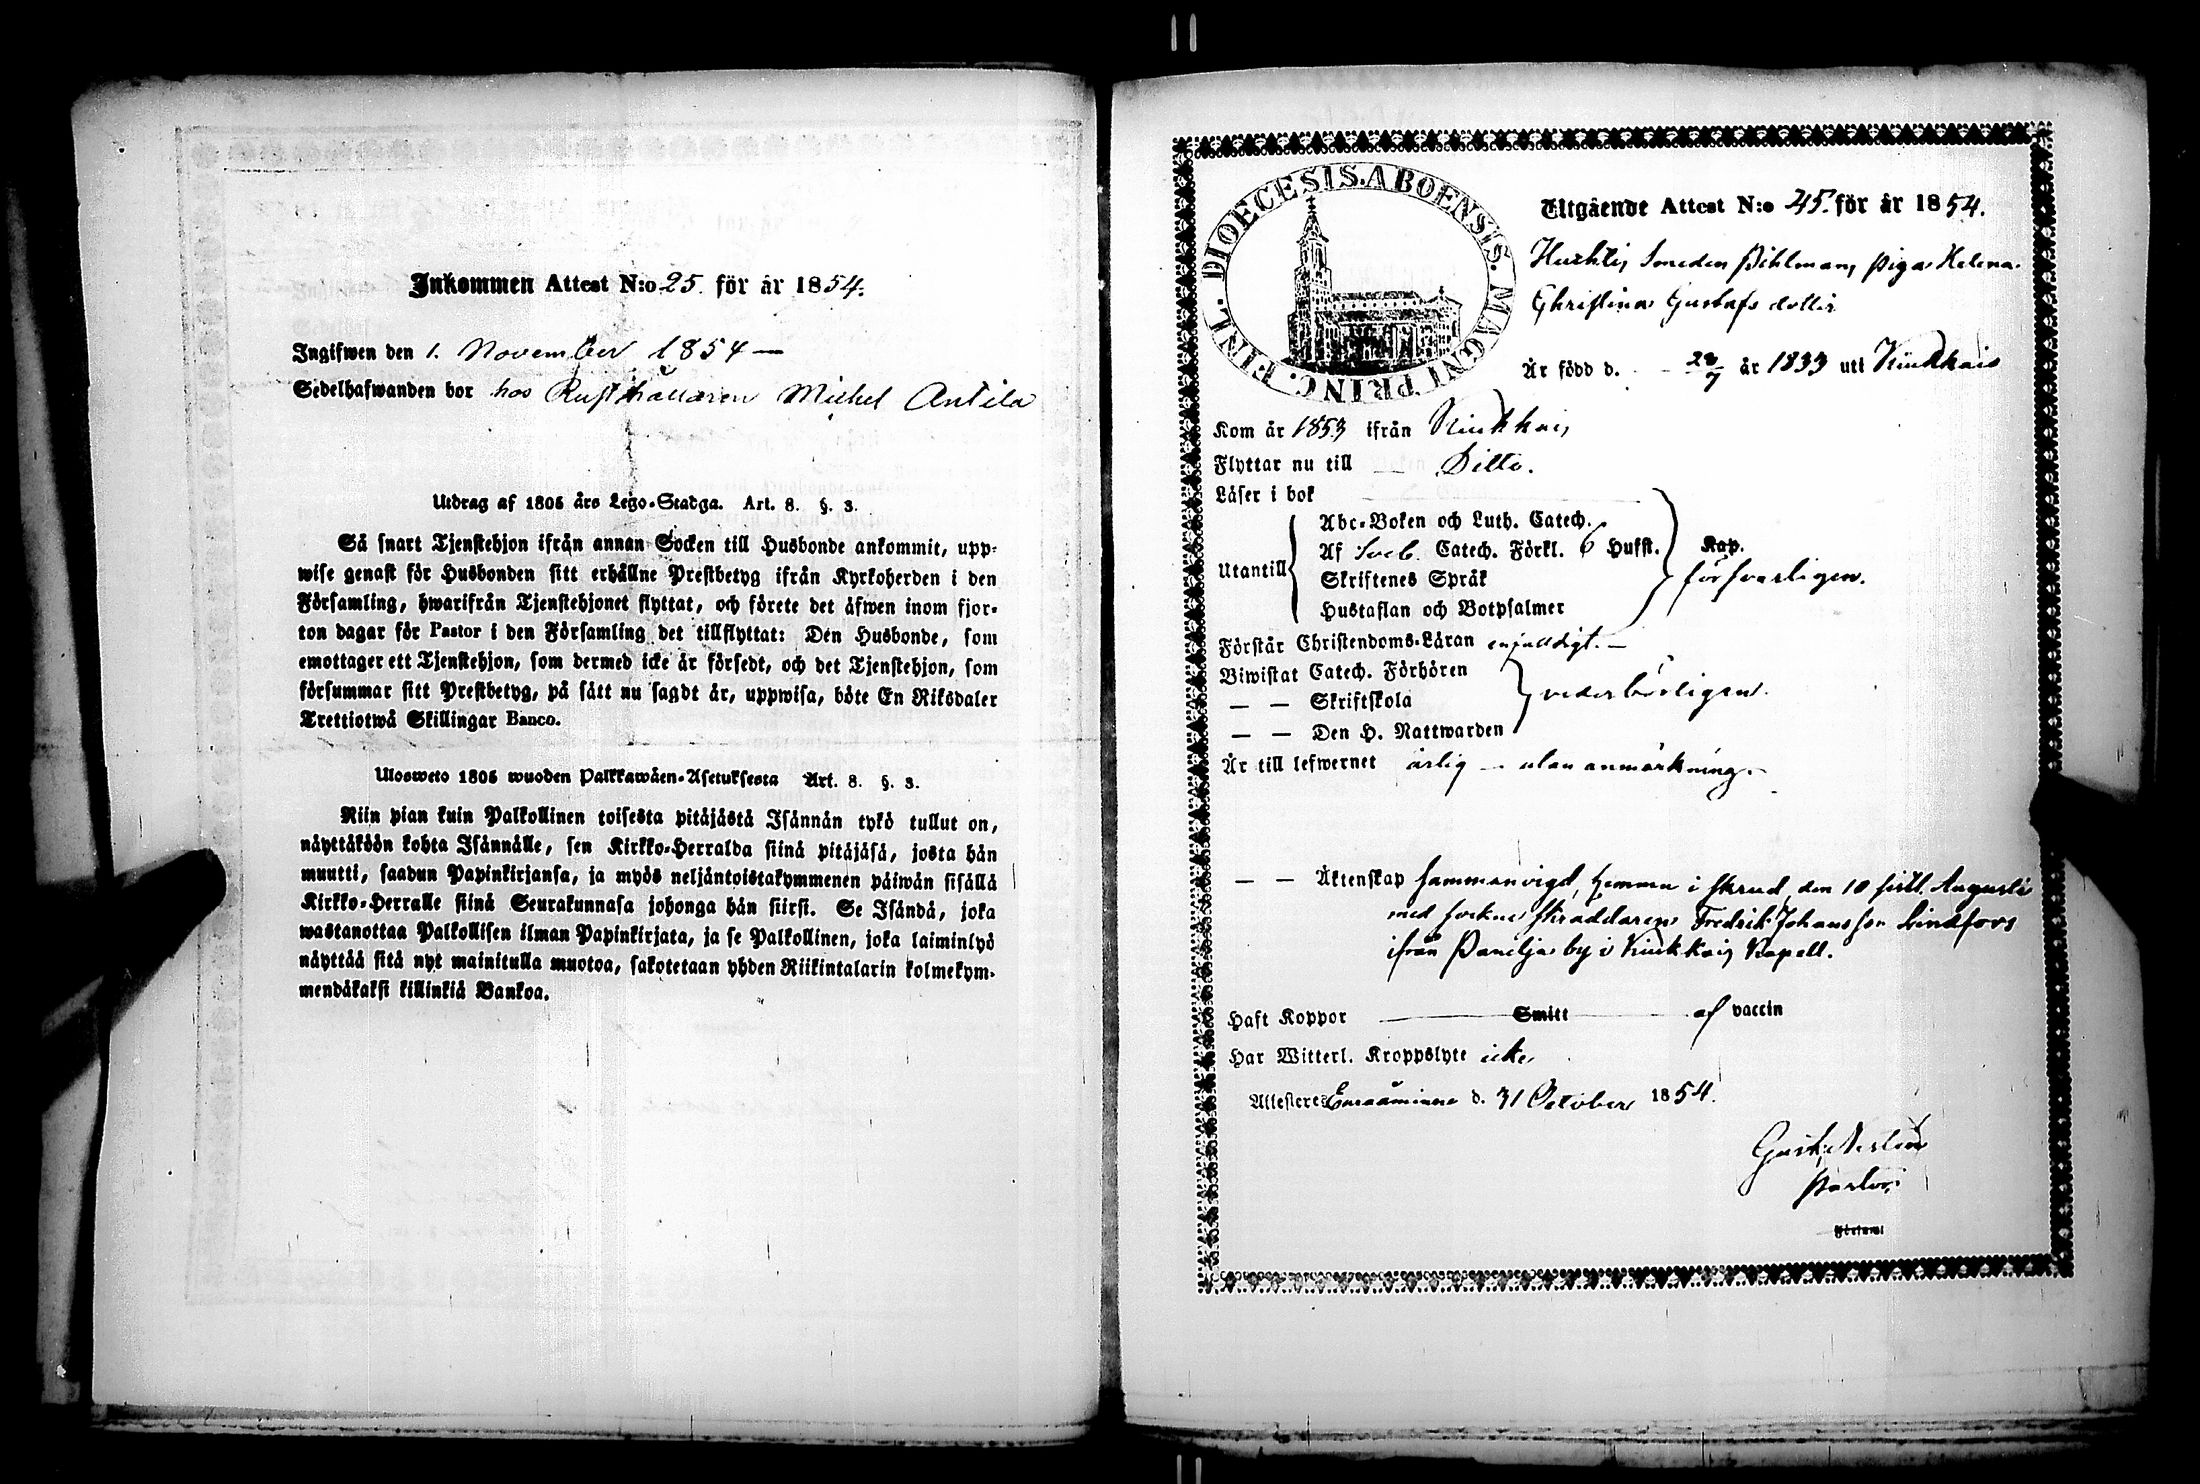 Inkommen Attest N:o 25. för år 1854.
Ingifwen den 1. November 1854 —
Sedelhafwanden bor hos Rusthållaren Michel Antila
Utdrag af 1805 års Lego-Stadga. Art. 8. §. 3.
Så snart Tjenstehjon ifrån annan Socken till Husbonde ankommit, upp-
wise genast för Husbonden sitt erhållne Prestbetyg ifrån Kyrkoherden i den
Församling, hwarifrån Tjenstehjonet flyttat, och förete det äfwen inom fjor-
ton dagar för Pastor i den Församling det tillflyttat: Den Husbonde, som
emottager ett Tjenstehjon, som dermed icke är försedt, och det Tjenstehjon, som
försummar sitt Prestbetyg, på sätt nu sagdt är, uppwisa, böte En Riksdaler
Trettiotwå Skillingar Banco.
Ulosweto 1805 wuoden Palkkawäen-Asetuksesta Art. 8. §. 3.
Niin pian kuin Palkollinen toisesta pitäjästä Isännän tykö tullut on,
näyttäköön kohta Isännälle, sen Kirkko-Herralda siinä pitäjäsä, josta hän
muutti, saadun Papinkirjansa, ja myös neljäntoistakymmenen päiwän sisällä
Kirkko-Herralle siinä Seurakunnasa johonga hän siirsi. Se Isändä, joka
wastanottaa Palkollisen ilman Papinkirjata, ja se Palkollinen, joka laiminlyö
näyttää sitä nyt mainitulla muotoa, sakotetaan yhden Riikintalarin kolmekym-
mendäkaksi killinkiä Bankoa.
DIOECESIS. ABOENSIS. MAGNI PRINC. FINL.
Utgående Attest N:o 45. för år 1854.
Smeden Pihlmans Piga Helena
Christina Gustafs dotter
Är född d. 23/7 år 1833 uti Kiukkais
Kom år 1853 ifrån Kiukkais
Flyttar nu till — Ditto.
Läser i bok
Abc-Boken och Luth. Catech.
Utantill Af Sveb. Catech. Förkl. 6 Hufst. Kap.
Skriftenes Språk försvarligen.
Hustaflan och Botpsalmer
Förstår Christendoms-Läran enfaldigt. —
Biwistat Catech. Förhören
— — Skriftskola vederbörligen.
— — Den H. Nattwarden
Är till lefwernet ärlig — utan anmärkning. —
— — Äktenskap sammanvigd, hemma i skrud, den 10 sistl. Augusti
med sockne skräddaren Fredrik Johansson Lindfors
ifrån Panelja by i Kiukkais Kapell.
Haft Koppor — Smitt — af vaccin
Har Witterl. Kroppslyte icke
Attesteres Euraåminne d. 31 October 1854.
Pastor
Församl